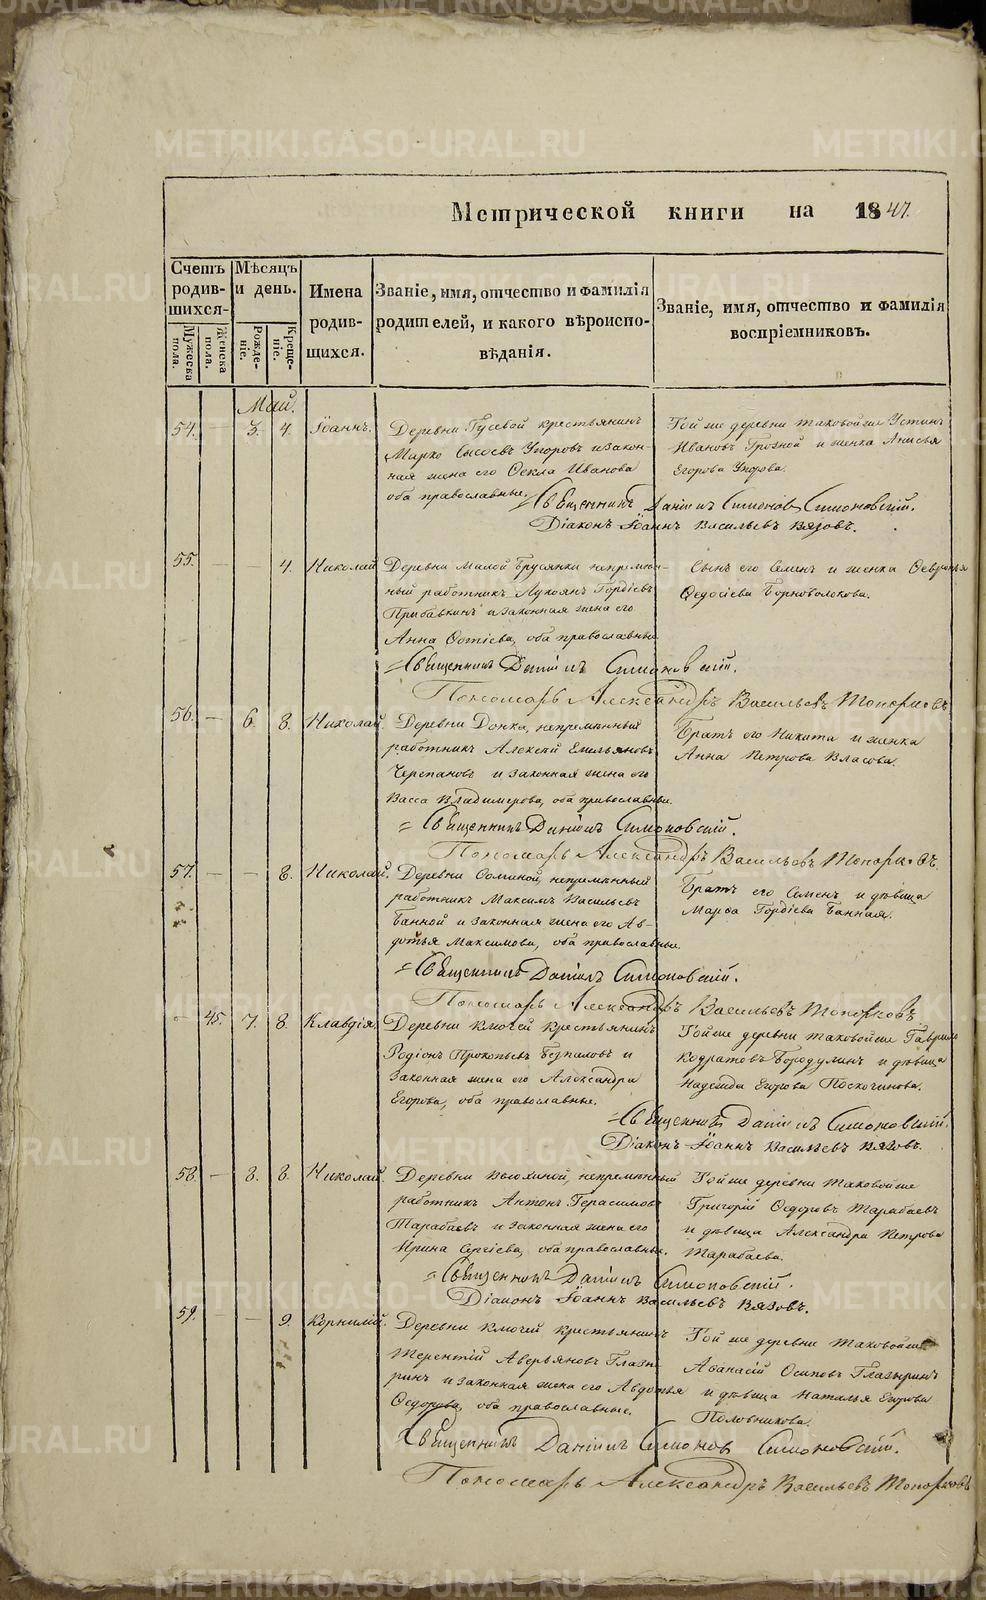 METRIKI.GASO-URAL.RU
Метрической книги на 1847.
Счетъ родив-шихся.
Мужеска пола.
Женска пола.
Мѣсяцъ и день.
Рожде-ніе.
Креще-ніе.
Имена родив-щихся.
Званіе, имя, отчество и фамилія родителей, и какого вѣроиспо-вѣданія.
Званіе, имя, отчество и фамилія воспріемниковъ.
Май.
54. — 3. 4. Іоаннъ.
Деревни Гусевой крестьянинъ
Марко Сысоевъ Упоровъ и закон-
ная жена его Ѳекла Иванова
оба православные.
Той же деревни таковой же Устинъ
Ивановъ Грозной и женка Анисья
Егорова
Священникъ Даніилъ Симоновъ Симоновскій.
Діаконъ Іоаннъ Васильевъ Вязовъ.
55. — — 4. Николай
Деревни Малой Брусянки непремѣн-
ный работникъ Лукоянъ Гордіевъ
Прибавкинъ и законная жена его
Анна Ѳотіева, оба православные.
Сынъ его Семенъ и женка Ѳеврон
Ѳедосіева Борноволокова.
Священникъ Даніилъ Симоновскій.
Пономарь Александръ Васильевъ Топорковъ
56. — 6. 8. Николай.
Деревни непремѣнный
работникъ Алексѣй Емельяновъ
Черепановъ и законная жена его
Васса Владимерова, оба православные.
Братъ его Никита и женка
Анна Петрова Власова.
Священникъ Даніилъ Симоновскій.
Пономарь Александръ Васильевъ Топорковъ.
57. — — 8. Николай.
Деревни Ѳоминой, непремѣнный
работникъ Максимъ Васильевъ
Банной и законная жена его Ав-
дотья Максимова, оба православные.
Братъ его Семенъ и дѣвица
Марѳа Гордіева Банная.
Священникъ Даніилъ Симоновскій.
Пономарь Александръ Васильевъ Топорковъ
— 45. 7. 8. Клавдія.
Деревни Ключей крестьянинъ
Родіонъ Прокопьевъ Безпаловъ и
законная жена его Александра
Егорова, оба православные.
Той же деревни таковой же Гаврилъ
Кодратовъ Бородулинъ и дѣвица
Надежда Егорова Поскочинова.
Священникъ Даніилъ Симоновскій.
Діаконъ Іоаннъ Васильевъ Вязовъ.
58. — 8. 8. Николай.
Деревни непремѣнный
работникъ Антонъ Герасимовъ
Тарабаевъ и законная жена его
Ирина Сергіева, оба православные.
Той же деревни таковой же
Григорій Ѳедоровъ Тарабаевъ
и дѣвица Александра Петрова
Тарабаева.
Священникъ Даніилъ Симоновскій.
Діаконъ Іоаннъ Васильевъ Вязовъ.
59. — — 9. Корнилій.
Деревни Ключей крестьянинъ
Терентій Аверьяновъ Глазы-
ринъ и законная жена его Авдотья
Ѳедорова, оба православные.
Той же деревни таковой же
Аѳанасій Осиповъ Глазыринъ
и дѣвица Наталья Егорова
Половникова.
Священникъ Даніилъ Симоновъ Симоновскій.
Пономарь Александръ Васильевъ Топорковъ